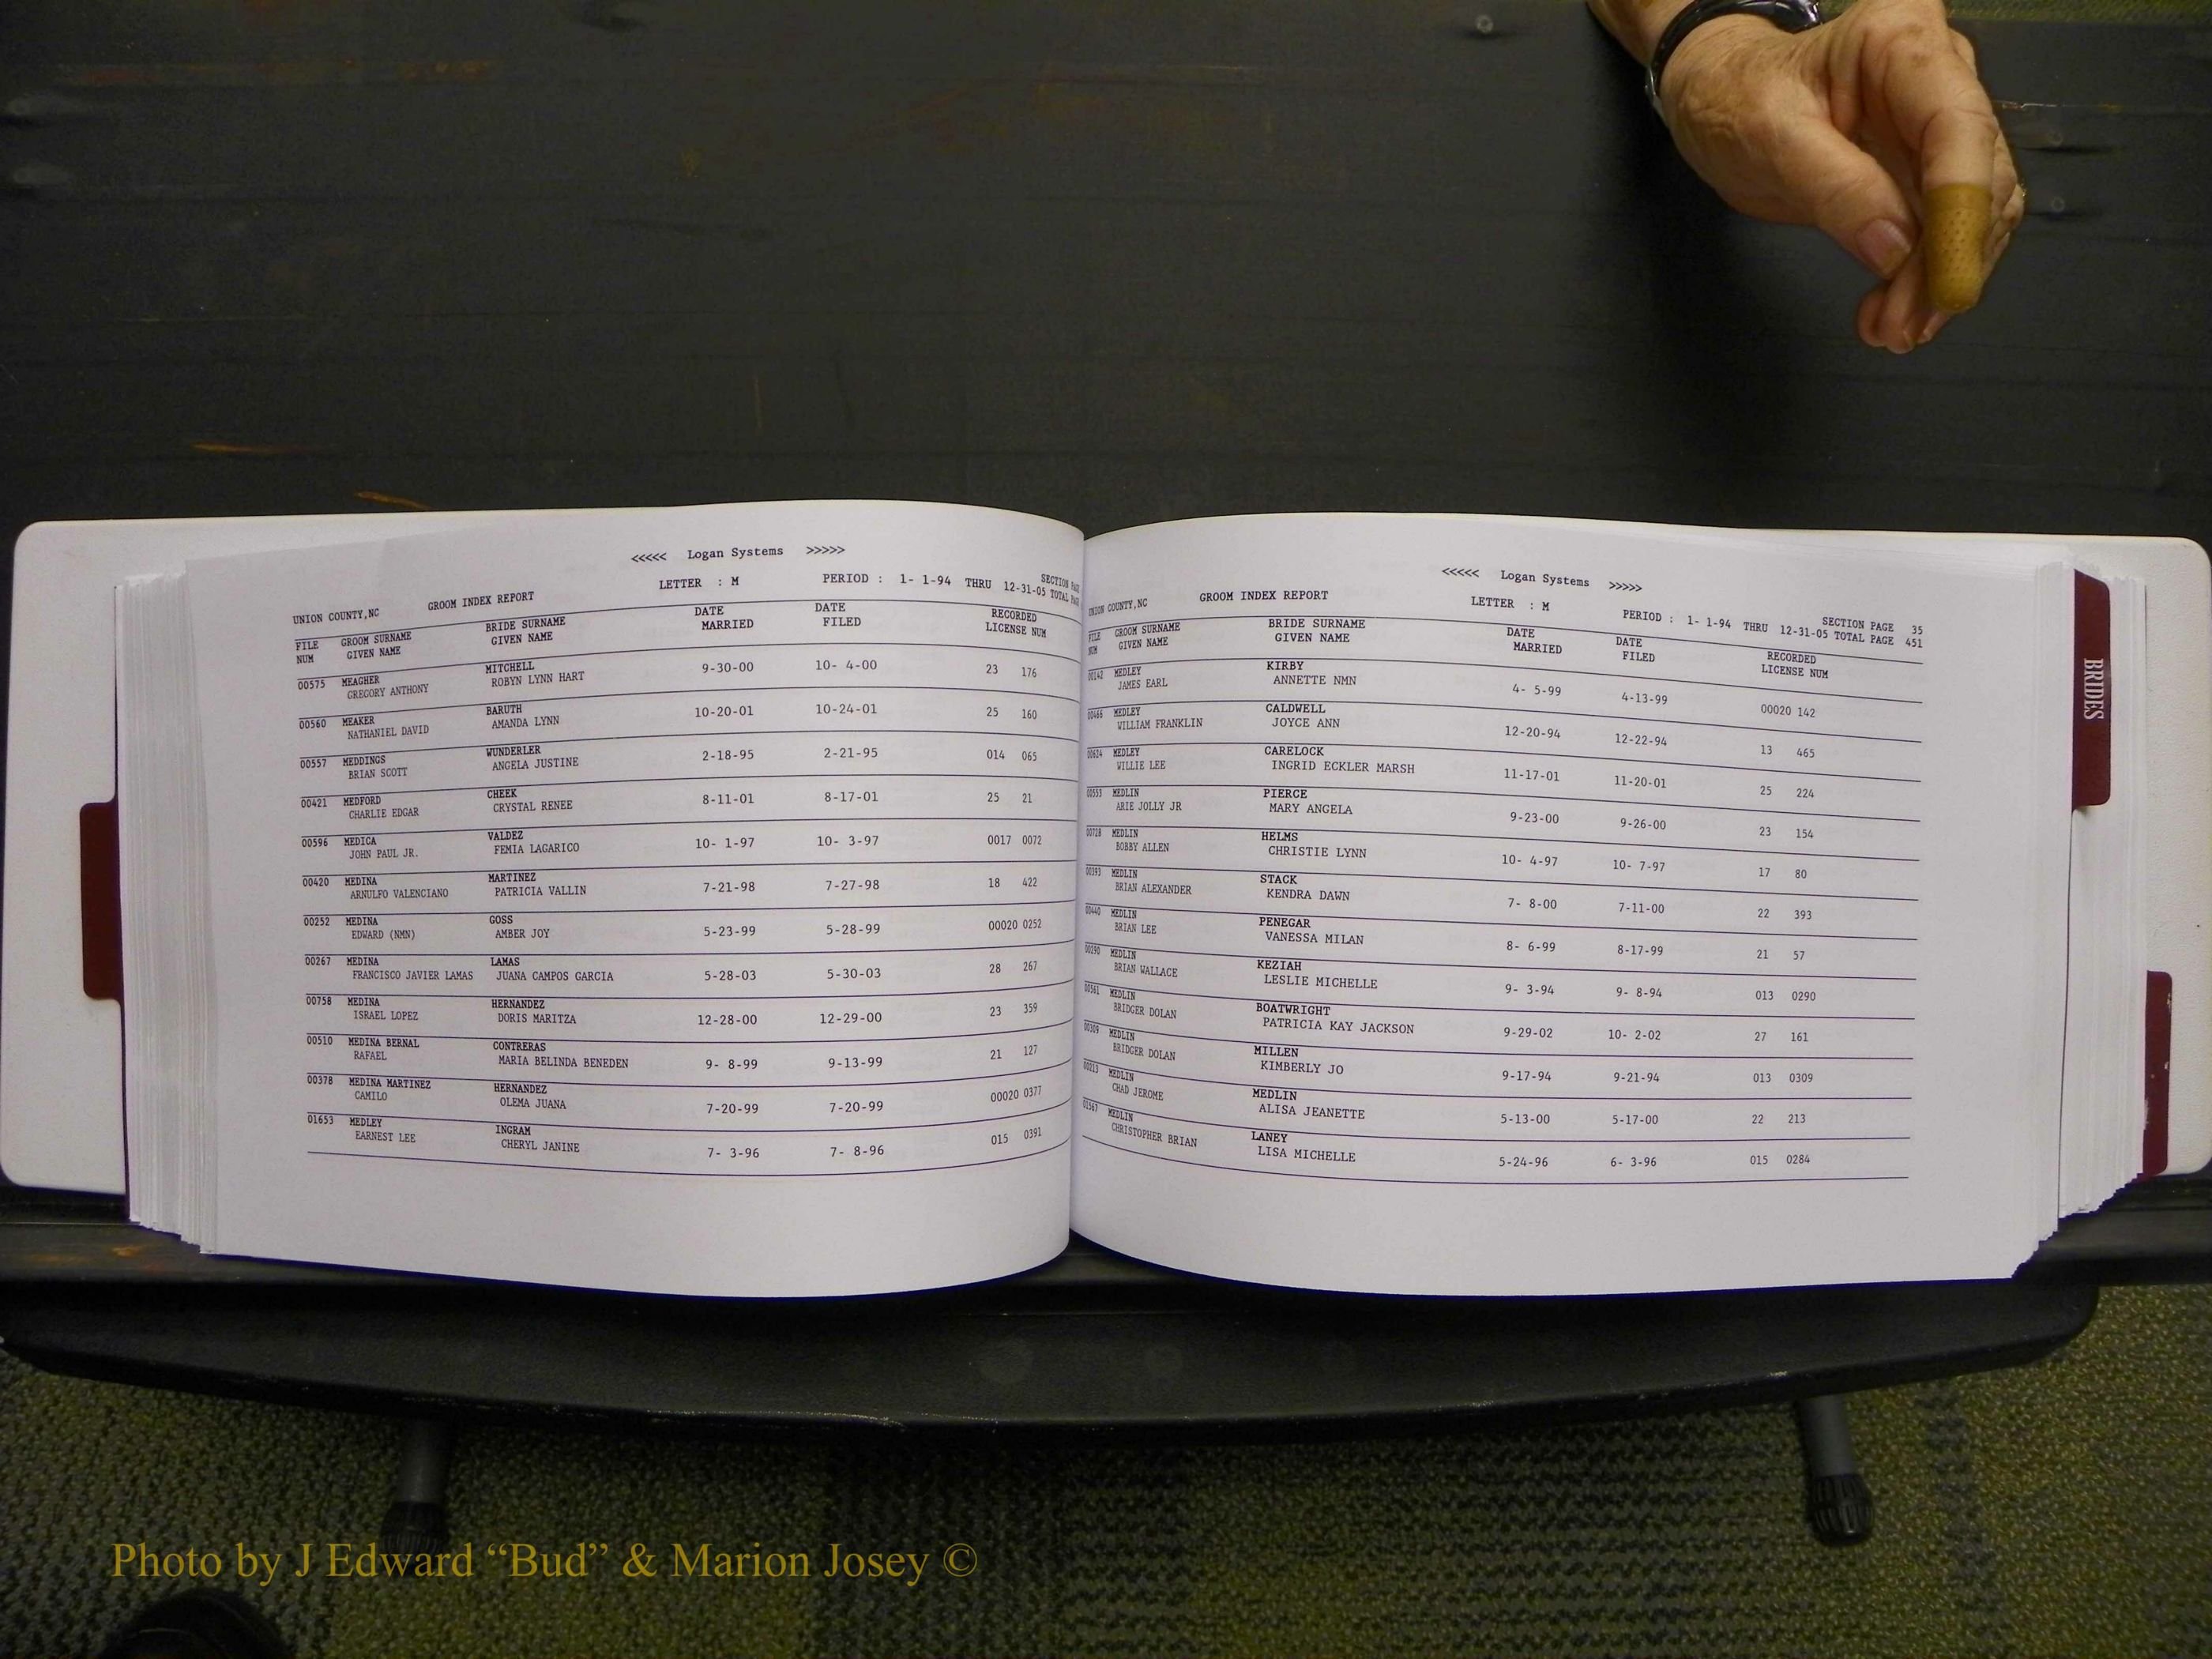 <<<<< Logan Systems >>>>>
UNION COUNTY,NC GROOM INDEX REPORT LETTER : M PERIOD : 1- 1-94 THRU 12-31-05 SECTION
TOTAL
FILE GROOM SURNAME BRIDE SURNAME DATE DATE RECORDED
NUM GIVEN NAME GIVEN NAME MARRIED FILED LICENSE NUM
00575 MEAGHER MITCHELL 9-30-00 10- 4-00 23 176
GREGORY ANTHONY ROBYN LYNN HART
00560 MEAKER BARUTH 10-20-01 10-24-01 25 160
NATHANIEL DAVID AMANDA LYNN
00557 MEDDINGS WUNDERLER 2-18-95 2-21-95 014 065
BRIAN SCOTT ANGELA JUSTINE
00421 MEDFORD CHEEK 8-11-01 8-17-01 25 21
CHARLIE EDGAR CRYSTAL RENEE
00596 MEDICA VALDEZ 10- 1-97 10- 3-97 0017 0072
JOHN PAUL JR. FEMIA LAGARICO
00420 MEDINA MARTINEZ 7-21-98 7-27-98 18 422
ARNULFO VALENCIANO PATRICIA VALLIN
00252 MEDINA GOSS 5-23-99 5-28-99 00020 0252
EDWARD (NMN) AMBER JOY
00267 MEDINA LAMAS 5-28-03 5-30-03 28 267
FRANCISCO JAVIER LAMAS JUANA CAMPOS GARCIA
00758 MEDINA HERNANDEZ 12-28-00 12-29-00 23 359
ISRAEL LOPEZ DORIS MARITZA
00510 MEDINA BERNAL CONTRERAS 9- 8-99 9-13-99 21 127
RAFAEL MARIA BELINDA BENEDEN
00378 MEDINA MARTINEZ HERNANDEZ 7-20-99 7-20-99 00020 0377
CAMILO OLEMA JUANA
01653 MEDLEY INGRAM 7- 3-96 7- 8-96 015 0391
EARNEST LEE CHERYL JANINE
<<<<< Logan Systems >>>>>
UNION COUNTY,NC GROOM INDEX REPORT LETTER : M PERIOD : 1- 1-94 THRU 12-31-05 SECTION PAGE 35
TOTAL PAGE 451
FILE GROOM SURNAME BRIDE SURNAME DATE DATE RECORDED
NUM GIVEN NAME GIVEN NAME MARRIED FILED LICENSE NUM
00142 MEDLEY KIRBY 4- 5-99 4-13-99 00020 142
JAMES EARL ANNETTE NMN
00466 MEDLEY CALDWELL 12-20-94 12-22-94 13 465
WILLIAM FRANKLIN JOYCE ANN
00624 MEDLEY CARELOCK 11-17-01 11-20-01 25 224
WILLIE LEE INGRID ECKLER MARSH
00553 MEDLIN PIERCE 9-23-00 9-26-00 23 154
ARIE JOLLY JR MARY ANGELA
00728 MEDLIN HELMS 10- 4-97 10- 7-97 17 80
BOBBY ALLEN CHRISTIE LYNN
00393 MEDLIN STACK 7- 8-00 7-11-00 22 393
BRIAN ALEXANDER KENDRA DAWN
00440 MEDLIN PENEGAR 8- 6-99 8-17-99 21 57
BRIAN LEE VANESSA MILAN
00290 MEDLIN KEZIAH 9- 3-94 9- 8-94 013 0290
BRIAN WALLACE LESLIE MICHELLE
00561 MEDLIN BOATWRIGHT 9-29-02 10- 2-02 27 161
BRIDGER DOLAN PATRICIA KAY JACKSON
00309 MEDLIN MILLEN 9-17-94 9-21-94 013 0309
BRIDGER DOLAN KIMBERLY JO
00213 MEDLIN MEDLIN 5-13-00 5-17-00 22 213
CHAD JEROME ALISA JEANETTE
01567 MEDLIN LANEY 5-24-96 6- 3-96 015 0284
CHRISTOPHER BRIAN LISA MICHELLE
BRIDES
Photo by J Edward “Bud” & Marion Josey ©